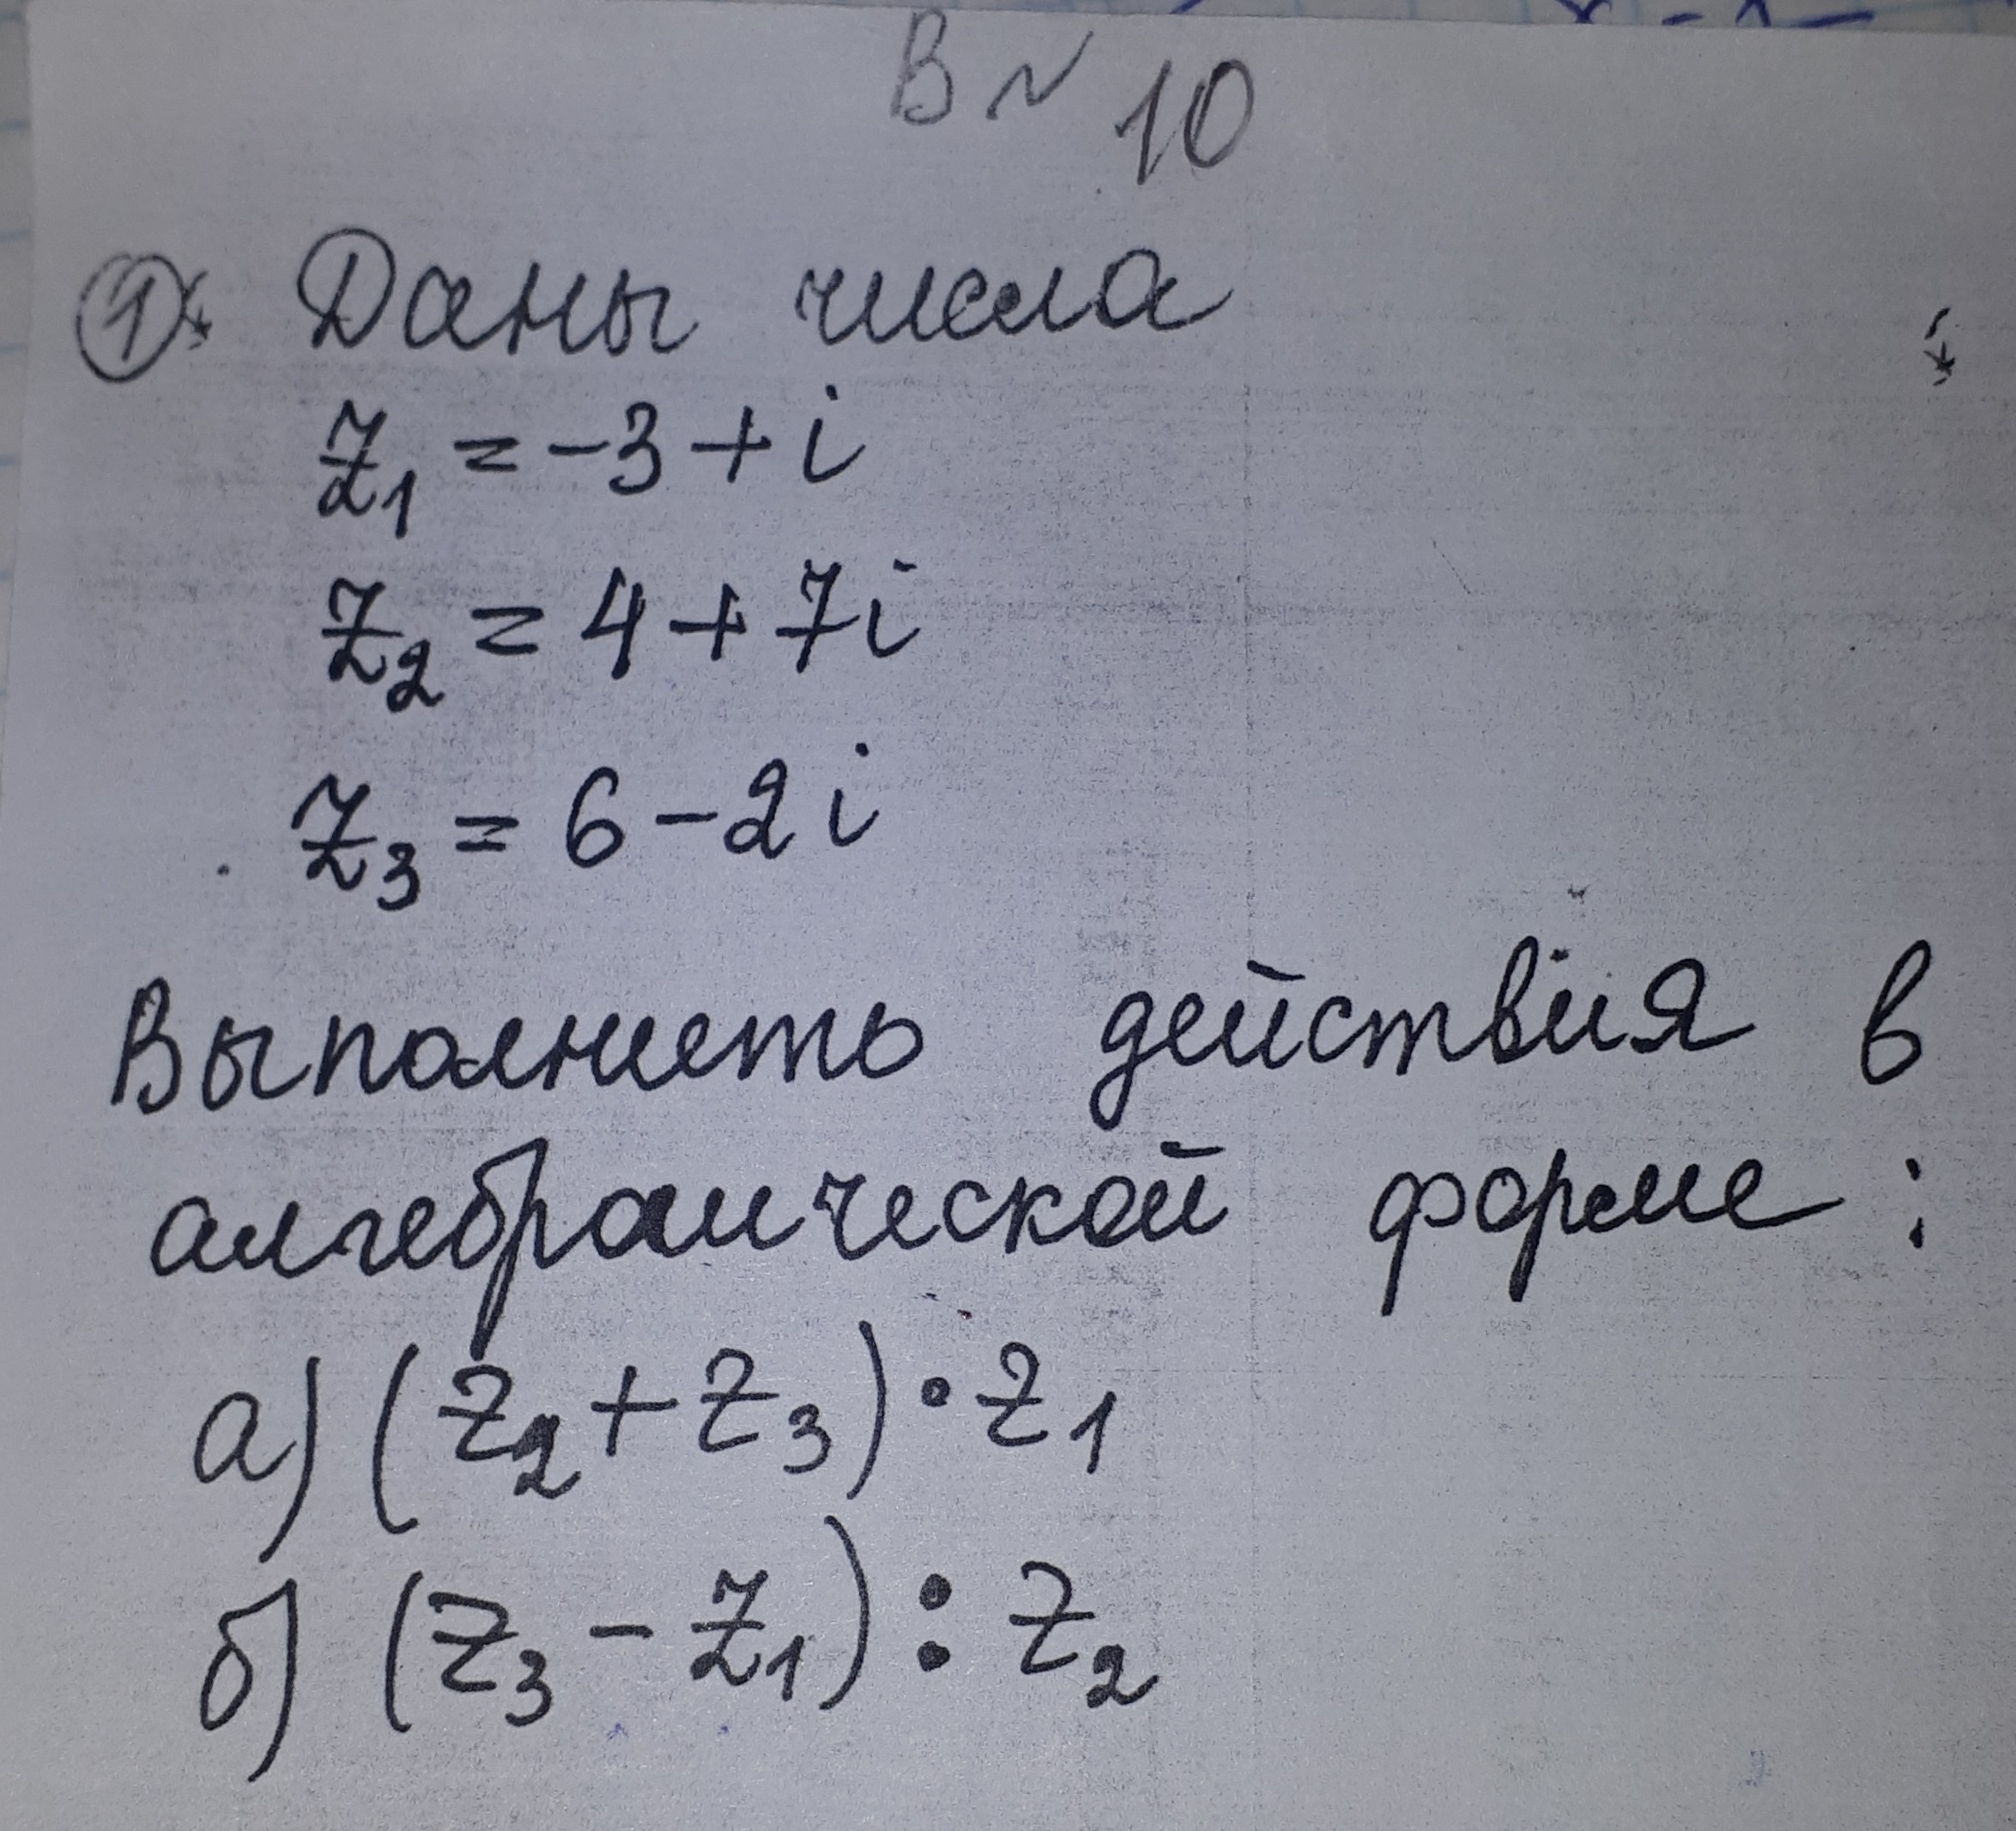 В № 10
1. Даны числа
z₁ = -3 + i
z₂ = 4 + 7i
z₃ = 6 - 2i
Выполнить действия в
алгебраической форме:
а) (z₂ + z₃) · z₁
б) (z₃ - z₁) : z₂